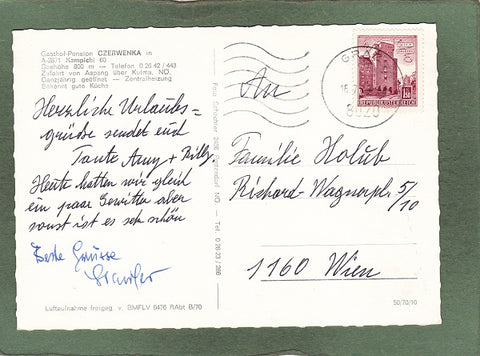 Gasthof-Pension CZERWENKA in
A-2871 Kampichl 60
Seehöhe 800 m — Telefon 0 26 42 / 443
Zufahrt von Aspang über Kulma, NÖ.
Ganzjährig geöffnet — Zentralheizung
Bekannt gute Küche
Herzliche Urlaubs=
grüsse sendet euch
Tante Amy + Billy.
Heute hatten wir gleich
ein paar Gewitter aber
sonst ist es sehr schön
Beste Grüsse
Luftaufnahme freigeg. v. BMFLV 8476 RAbt B/70
GRAZ
8020
REPUBLIK ÖSTERREICH
An
Familie Holub
Richard-Wagnerpl. 5/10
1160 Wien
50/70/10